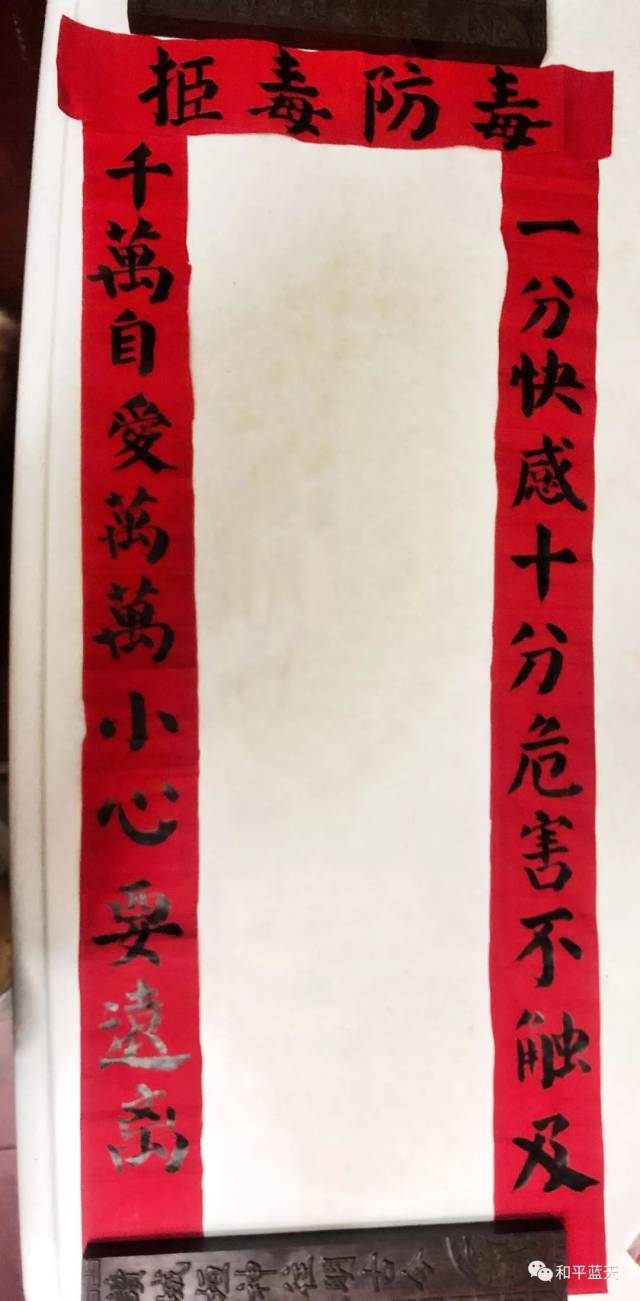 拒毒防毒
一分快感十分危害不触及
千萬自愛萬萬小心要遠离
和平蓝天